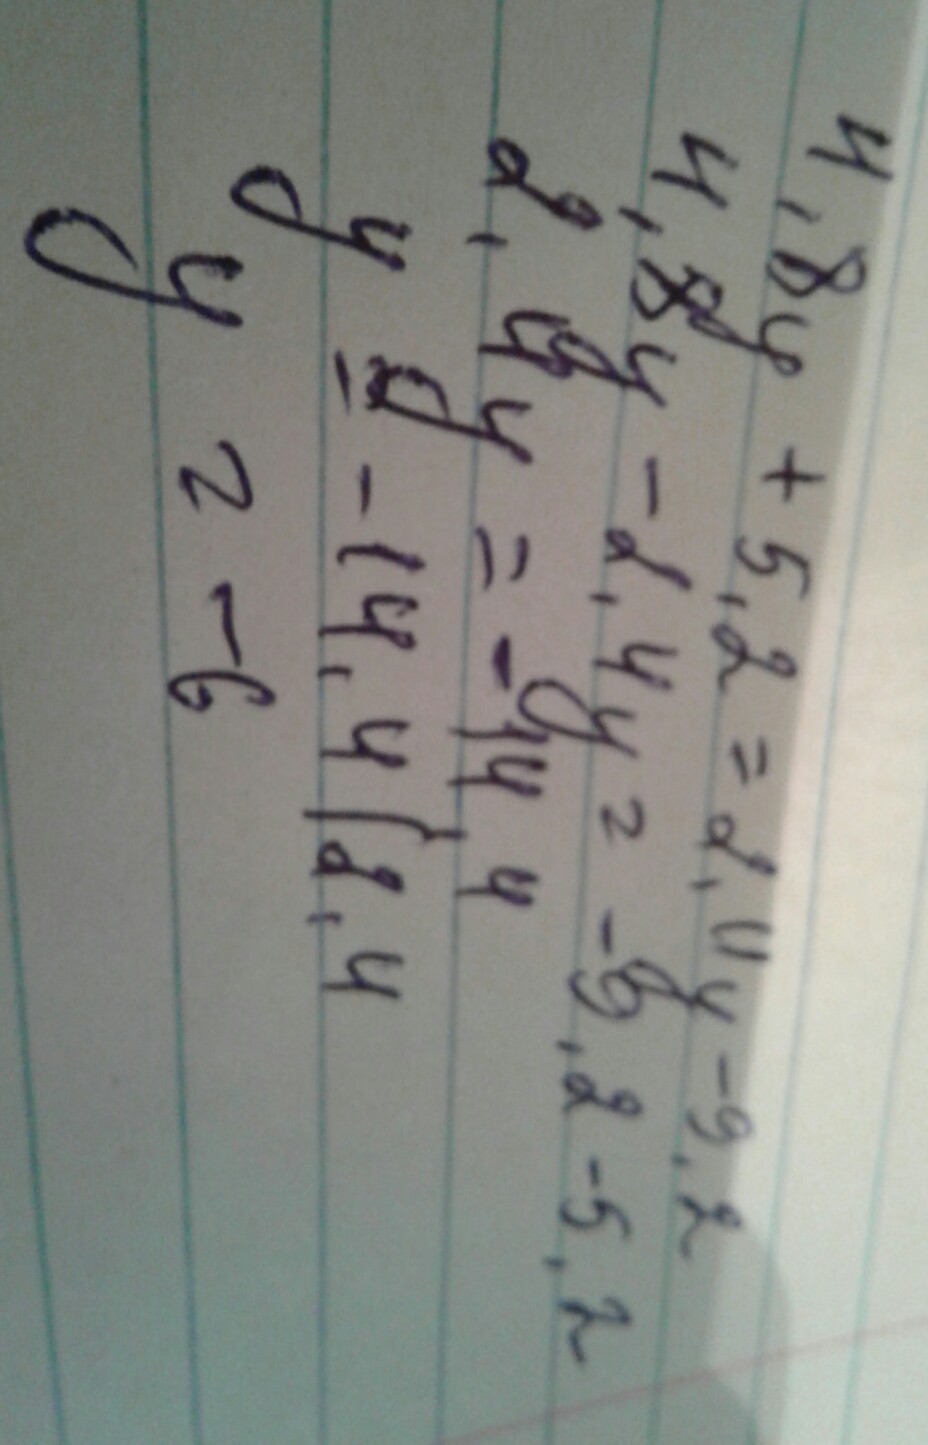 4,8y + 5,2 = 2,4y - 9,2
4,8y - 2,4y = -9,2 - 5,2
2,4y = -14,4
y = -14,4 | 2,4
y = -6